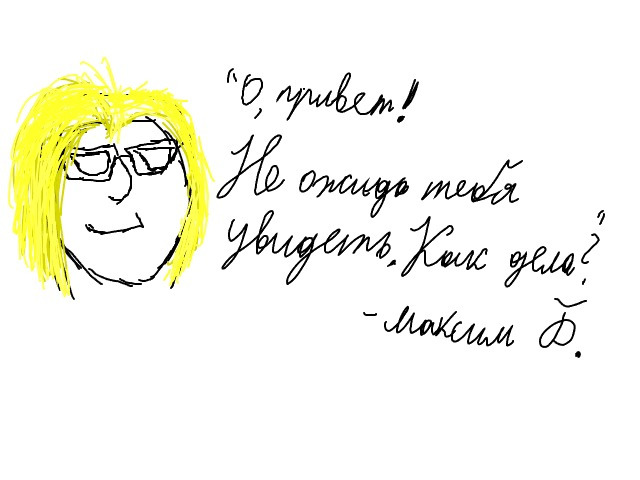 "О, привет!
Не ожидо тебя
увидеть. Как дела?"
- Максим Б.